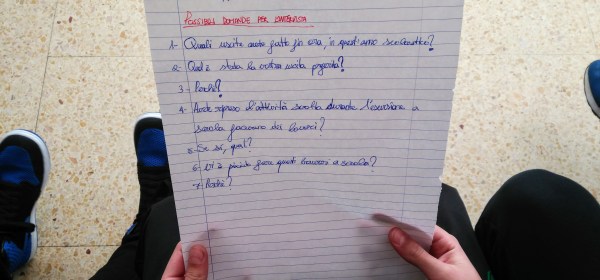 POSSIBILI DOMANDE PER L'INTERVISTA
1- Quali uscite avete fatto fin ora, in quest'anno scolastico?
2- Qual è stata la vostra uscita preferita?
3- Perché?
4- Avete ripreso l'attività svolta durante l'escursione a
scuola facendo dei lavori?
5- Se sì, quali?
6- Vi è piaciuto fare questi lavori a scuola?
7- Perché?